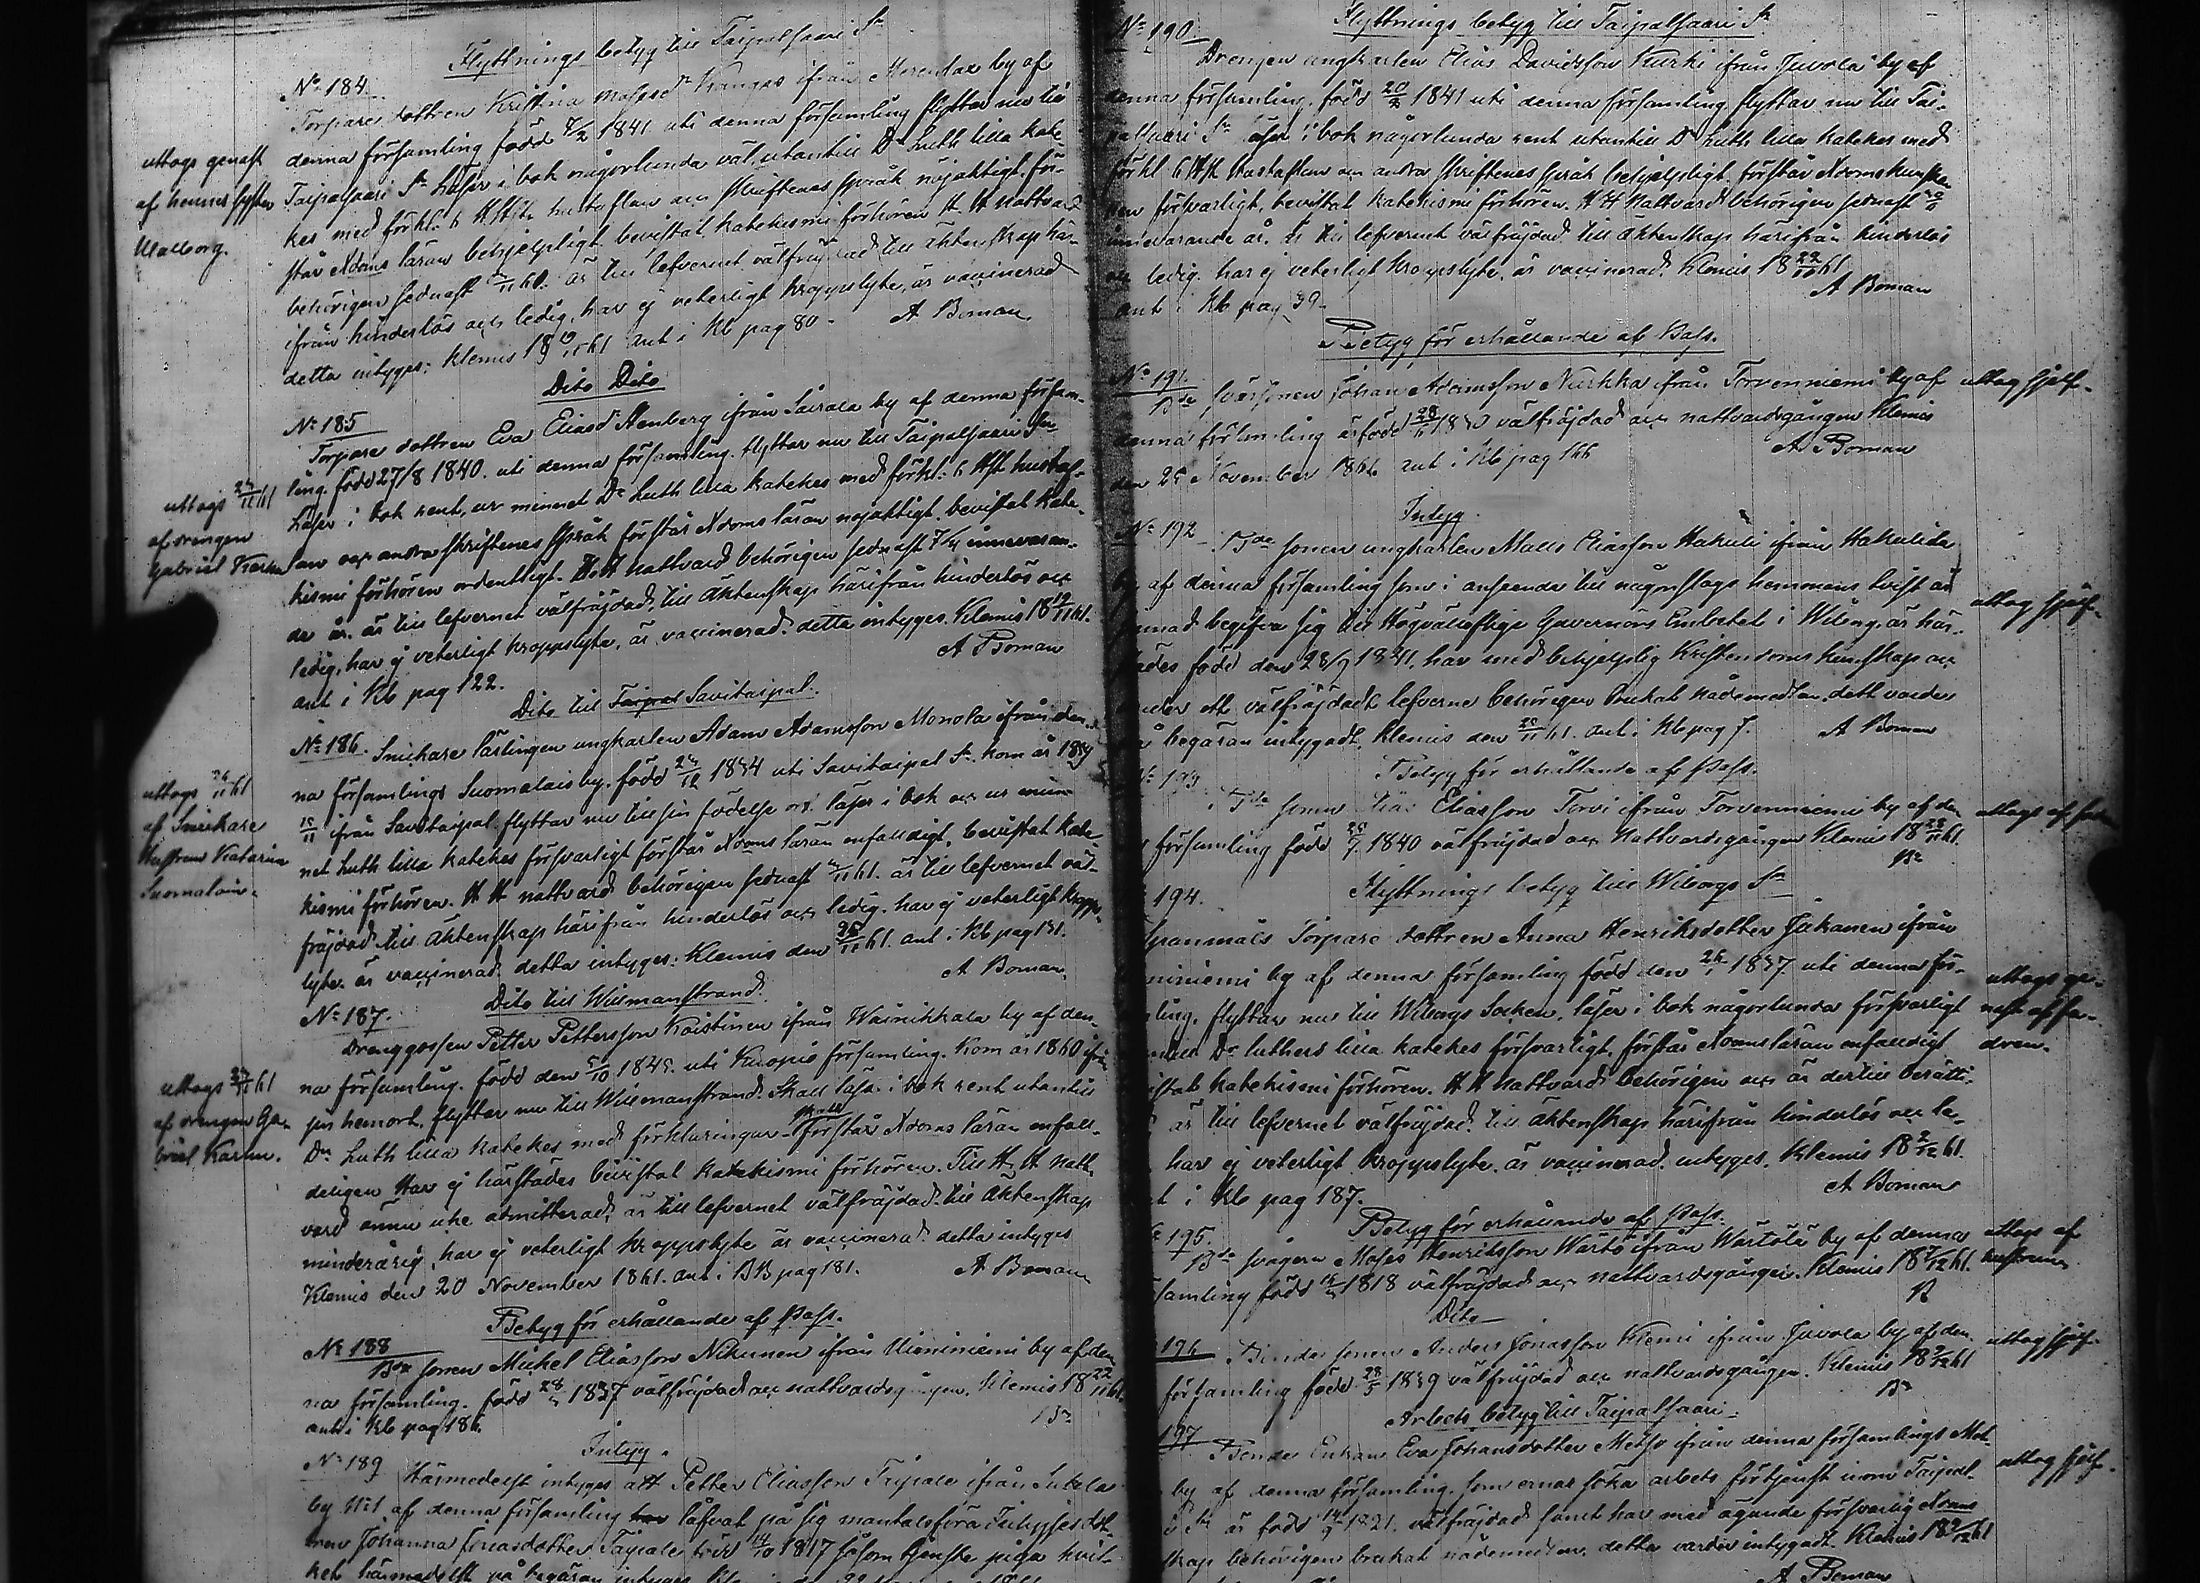 Flyttnings betyg till Taipalsaari Sn
No 184.
Torpare dottren Kristina Mosesdr Kangas ifrån by af
denna församling född 1841 uti denna församling flyttar nu till
Taipalsaari Sn Läser i bok någorlunda väl, utantill Dr Luth lilla kate-
kes med förkl. 6 H.St. hustaflan och skriftenes språk nöjaktigt, för-
står Xdoms läran behjelpligt. bevistat katekismi förhören H. H. nattvard
behörigen sednast 61. är till lefvernet välfräjdad till äktenskap här-
ifrån hinderlös och ledig, har ej veterligt kroppslyte, är vaccinerad
detta intyges: Klemis 18 19/11 61 ant i Kb pag 80 A Boman
uttogs genast
af hennes syster
Walborg.
Dito Dito
No 185
Torpare dottren Eva Eliasdr Stenberg ifrån Sairala by af denna försam-
ling. född 27/8 1840. uti denna församling. flyttar nu till Taipalsaari Sn
Läser i bok rent, ur minnet Dr Luth lilla katekes med förkl. 6 H.St. hustafl-
an och andra skriftenes språk förstår Xdoms läran nöjaktigt. bevistat kate-
kismi förhören ordentligt. H. H. nattvard behörigen sednast innevaran-
de år. är till lefvernet välfräjdad, till äktenskap härifrån hinderlös och
ledig, har ej veterligt kroppslyte, är vaccinerad. detta intyges. Klemis 18 19/11 61.
ant i Kb pag 122. A Boman
uttogs 61
af drengen
Gabriel
Dito till Taipal Savitaipal.
No 186. Smickare lärlingen ungkarlen Adam Adamsson Monola ifrån den-
na församlings Suomalais by. född 1834 uti Savitaipal Sn. kom år 1859
ifrån Savitaipal flyttar nu till sin födelse ort. läser i bok och ur min-
net Luth lilla katekes försvarligt förstår Xdoms läran enfaldigt, bevistat kate-
kismi förhören. H H nattvard behörigen sednast 61. är till lefvernet väl-
fräjdad till äktenskap härifrån hinderlös och ledig. har ej veterligt kropps-
lyte. är vaccinerad detta intyges: Klemis den 61. ant i Kb pag 131.
A Boman
uttogs 61
af Smickare
Hustrun Katarina
Suomalain.
No 187. Dito till Wilmanstrand.
Drenggossen Petter Pettersson Koistinen ifrån Wainikkala by af den-
na församling. född den 5/10 1845. uti Kuopio församling. Kom år 1860 ifrån
sin hemort, flyttar nu till Wilmanstrand. Skall läsa i bok rent utantill
Dr Luth lilla katekes med förklaringar. skall förstår Xdoms läran enfald-
deligen Har ej härstädes bevistat katekismi förhören. Till H. H natt-
vard ännu icke admitterad, är till lefvernet välfräjdad. till äktenskap
minderårig, har ej veterligt kroppslyte är vaccinerad detta intyges
Klemis den 20 November 1861. ant i Kb pag 181. A Boman
uttogs 61
af drengen Ga-
briel
Betyg för erhållande af Pass.
No 188
Bde sonen Mickel Eliasson Nikunen ifrån by af den-
na församling. född 1837 välfräjdad och nattvardsgången. Klemis 18 22/11 61.
ant i Kb pag 186. Bn
Intyg.
No 189 Härmedelst intyges att Petter Eliasson Taipale ifrån
by No 1 af denna församling låfvat på sig mantalsföra Inhyses dot-
tren Johanna Jonasdotter Taipale född 1817 såsom tjenste piga hvil-
ket härmedelst på begäran intyges
No 190. Flyttnings betyg till Taipalsaari Sn
Drengen ungkarlen Elias Davidsson Kurki ifrån Juvola by af
denna församling. född 20/2 1841 uti denna församling flyttar nu till Tai-
palsaari Sn läser i bok någorlunda rent utantill Dr Luth lilla katekes med
förkl 6 H.St. Hustaflan och andra skriftenes språk behjelpligt. förstår Xdoms
försvarligt, bevistat katekismi förhören. H H Nattvard behörigen sednast
innevarande år. är till lefvernet välfräjdad till äktenskap härifrån hinderlös
och ledig. har ej veterligt kroppslyte. är vaccinerad. Klemis 18 22/11 61
ant i Kb pag 39. A Boman
Betyg för erhållande af Pass.
No 191.
Bde Johan Adamsson Nurkka ifrån Torvenniemi by af
denna församling är född välfräjdad och nattvardsgången Klemis
den November 1861 ant i Kb pag 166 A Boman
uttog sjelf.
Intyg.
No 192 Bde sonen ungkarlen Matts Eliasson Hakuli ifrån Hakulila
by af denna församling som i anseende till någonslags hemmans tvist är
sinnad begifva sig till Högvällofliga Gouvernörs Embetet i Wiborg, är här-
städes född den 28/9 1841. har med behjelplig Kristendoms kunskap och
under ett välfräjdadt lefverne behörigen brukat nådemedlen. dett varder
på begäran intygadt. Klemis den 61. ant i Kb pag 7. A Boman
uttog sjelf.
Betyg för erhållande af Pass.
No 193
Bde sonen Elias Eliasson Torvi ifrån Torvenniemi by af den
församling född 1840 välfräjdad och Nattvardsgången Klemis 18 28/11 61.
Bn
194. Flyttnings betyg till Wiborgs Sn
Spanmåls Torpare dottren Anna Henriksdotter Jakonen ifrån
by af denna församling född den 1837 uti denna för-
ling. flyttar nu till Wiborgs Socken. läser i bok någorlunda försvarligt
Dr luthers lilla katekes försvarligt, förstår Xdoms läran enfaldigt
katekismi förhören. H H nattvard behörigen och är dertill berätti-
är till lefvernet välfräjdad. till äktenskap härifrån hinderlös och le-
har ej veterligt kroppslyte. är vaccinerad. intyges. Klemis 18 2/12 61.
i Kb pag 187. A Boman
uttogs ge-
nast af fa-
dren.
Betyg för erhållande af Pass.
195.
Bde svågern Moses Henriksson Wärtö ifrån Wärtölä by af denna
församling född 1818 välfräjdad och nattvardsgången. Klemis 18 /12 61.
B
uttogs af
hustrun
Dito
196 Bonde sonen Anders Jonasson Klemi ifrån Juvola by af den
församling född 1839 välfräjdad och nattvardsgången. Klemis 18 /12 61
Bn
uttog sjelf.
Arbets betyg till Taipalsaari
197
Bonde Enkan Eva Johansdotter Metso ifrån denna församlings
by af denna församling. som ernar söka arbets förtjenst inom Taipal-
Sn är född 14/9 1821. välfräjdad samt har med ägande försvarlig Xdoms
skap behörigen brukat nådemedlen. detta varder intygadt. Klemis 18 9/12 61
A Boman
uttog sjelf.